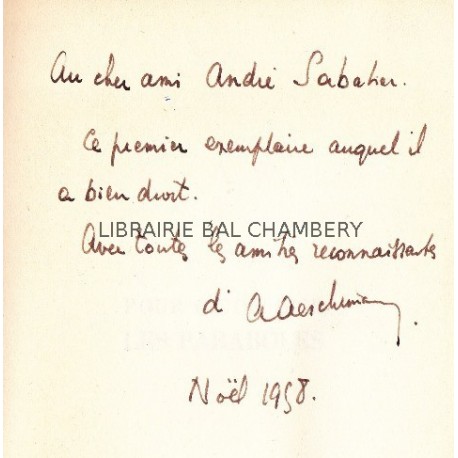 Au cher ami André Sabatier.
Ce premier exemplaire auquel il
a bien droit.
LIBRAIRIE BAL CHAMBERY
Avec toutes les amitiés reconnaissantes
d'
Noël 1958.